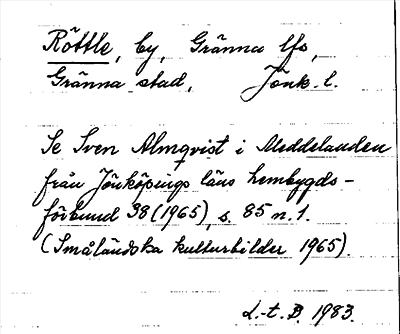 Röttle, by, Gränna lfs,
Gränna stad, Jönk. l.
Se Sven Almqvist i Meddelanden
från Jönköpings läns hembygds-
förbund 38 (1965), s. 85 n. 1.
(Småländska kulturbilder 1965).
L.-t. B. 1983.